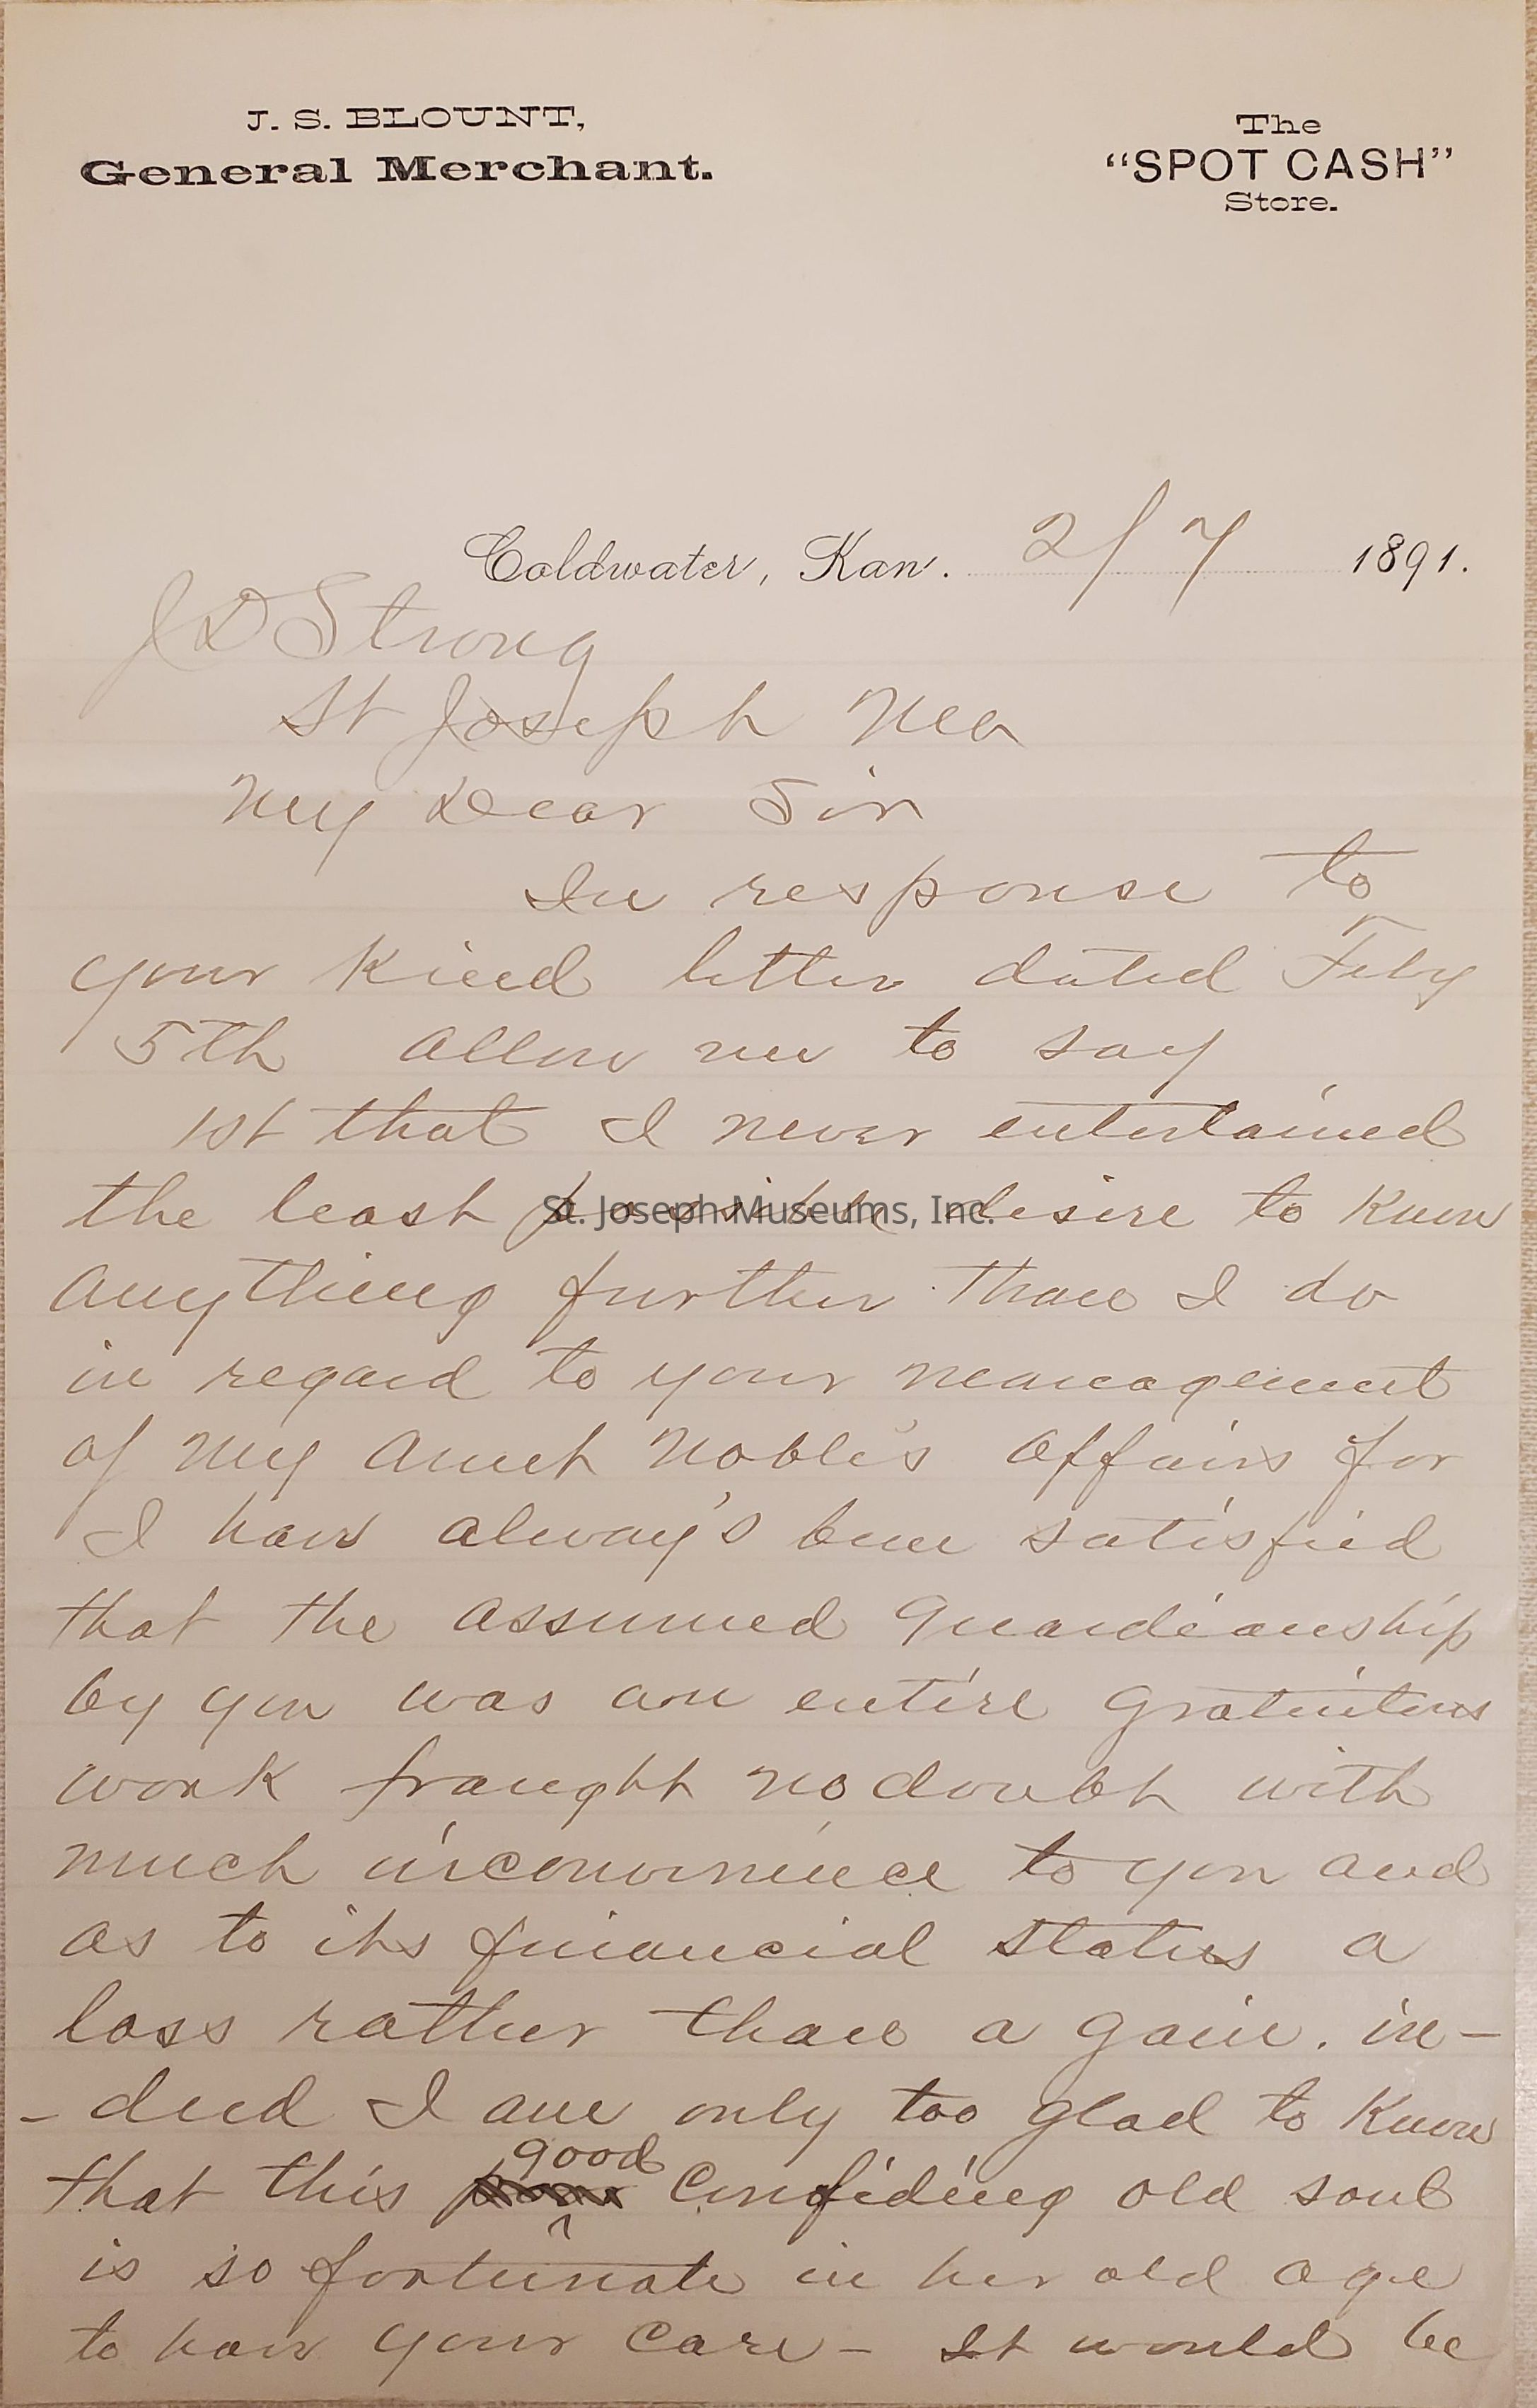 J. S. BLOUNT,
General Merchant.
The
"SPOT CASH"
Store.
Coldwater, Kan. 2/7 1891.
J D Strong
St Joseph Mo
My Dear Sir
In response to
your kind letter dated Feby
5th allow me to say
1st that I never entertained
the least possible desire to know
anything further than I do
in regard to your management
of my Aunt Noble's affairs for
I have alway's been satisfied
that the assumed guardianship
by you was an entire gratuitous
work fraught no doubt with
much inconvenience to you and
as to its financial status a
loss rather than a gain. in-
- deed I am only too glad to know
that this good confiding old soul
is so fortunate in her old age
to have your care - It would be
St. Joseph Museums, Inc.